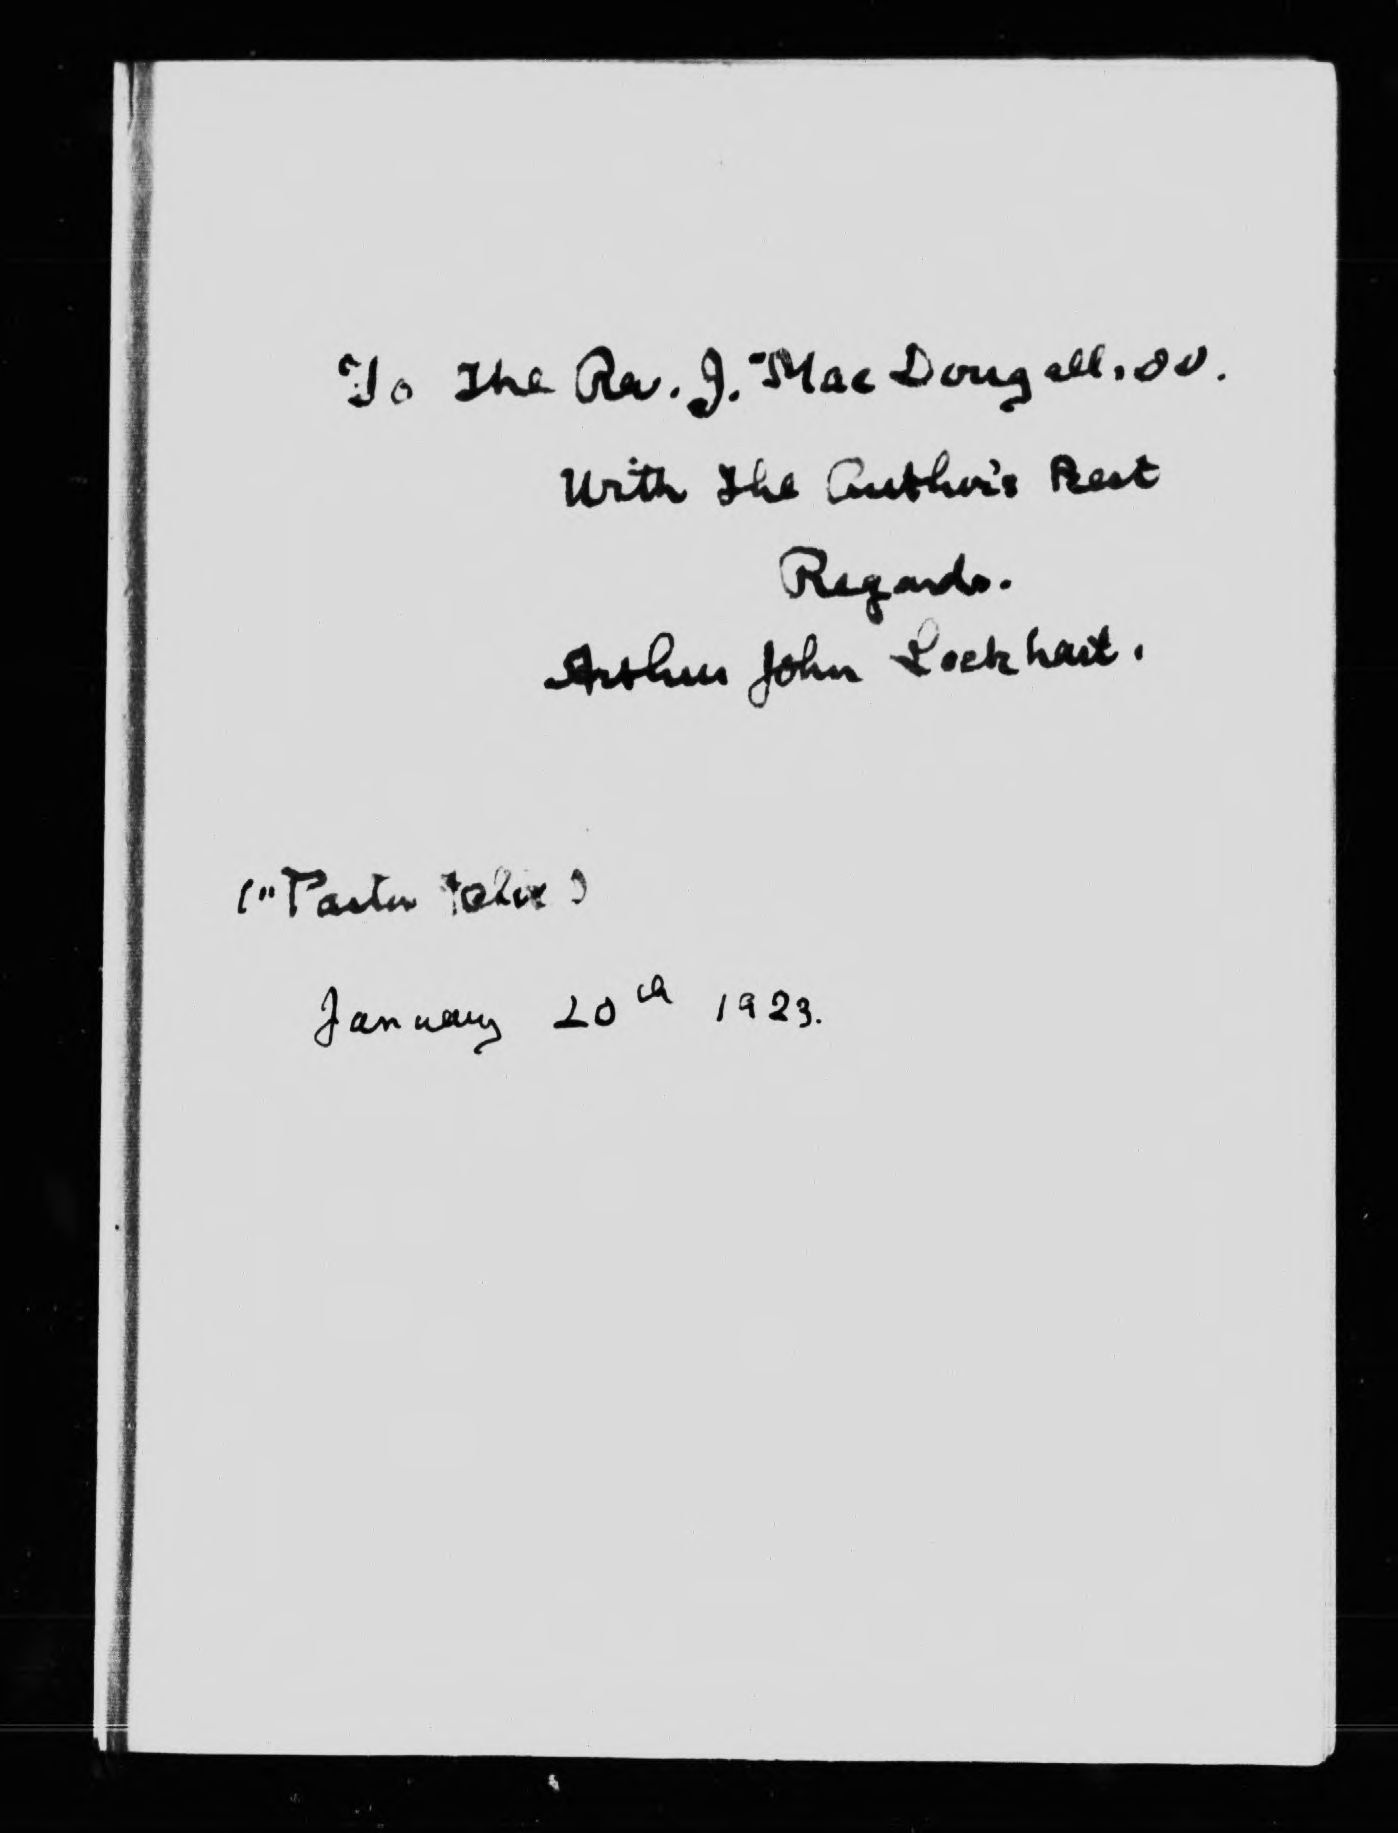 To The Rev. J. MacDougall, DD.
With The Author's Best
Regards.
Arthur John Lockhart.
("Pastor Felix)
January 20th 1923.